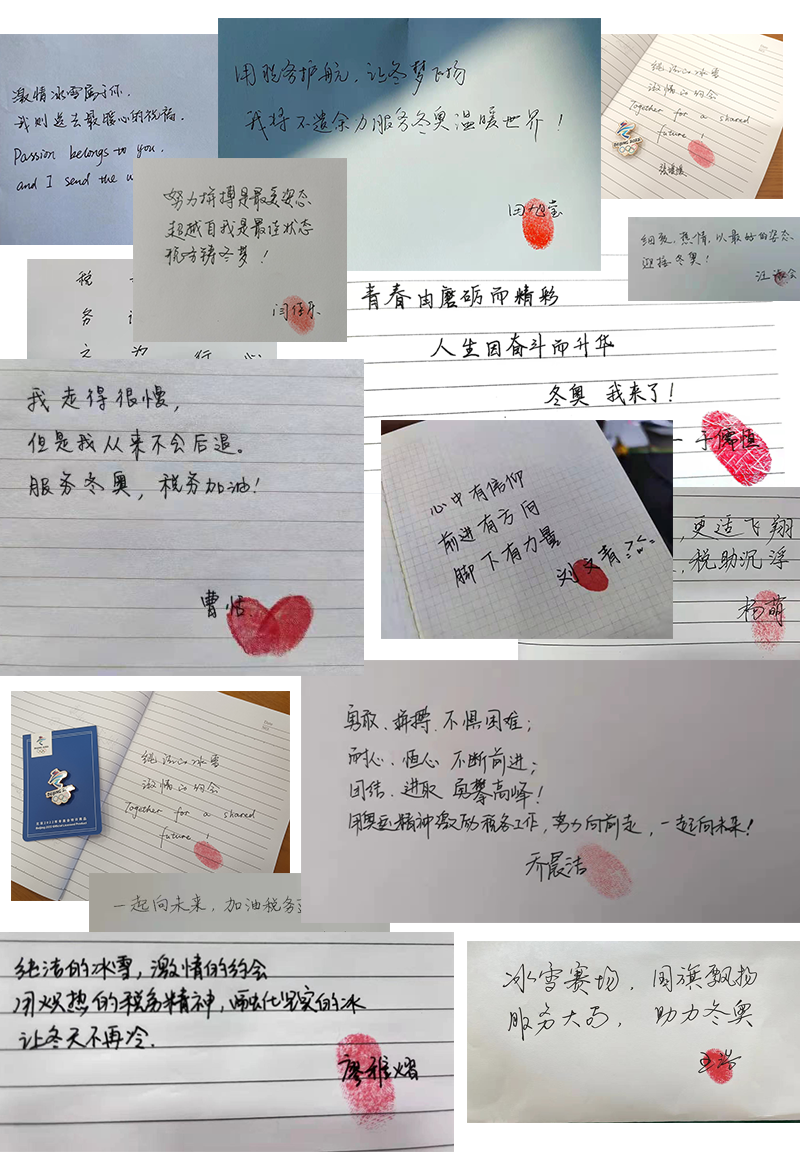 激情冰雪属于你.
我则送去最暖心的祝福.
Passion belongs to you.
and I send the w
用税务护航, 让冬梦飞扬
我将不遗余力服务冬奥温暖世界!
田旭莹
纯洁的冰雪
激情的约会
Together for a shared
future !
BEIJING 2022
努力拼搏是最美姿态
超越自我是最佳状态
税务铸冬梦!
细致、热情, 以最好的姿态
迎接冬奥!
税
务
之 为 行 心
青春由磨砺而精彩
人生因奋斗而升华
冬奥 我来了!
于儒恒
我走得很慢,
但是我从来不会后退。
服务冬奥, 税务加油!
曹恬
心中有信仰
前进有方向
脚下有力量
刘文青
, 更适飞翔
, 税助沉浮
杨萌
BEIJING 2022
纯洁的冰雪
激情的约会
Together for a shared
future !
勇敢、拼搏、不惧困难;
耐心、恒心 不断前进;
团结、进取 勇攀高峰!
用奥运精神激励税务工作, 努力向前走, 一起向未来!
乔晨洁
一起向未来, 加油税务
纯洁的冰雪, 激情的约会
用炽热的税务精神, 画出坚实的冰
让冬天不再冷.
廖雅熠
冰雪赛场, 国旗飘扬
服务大局, 助力冬奥